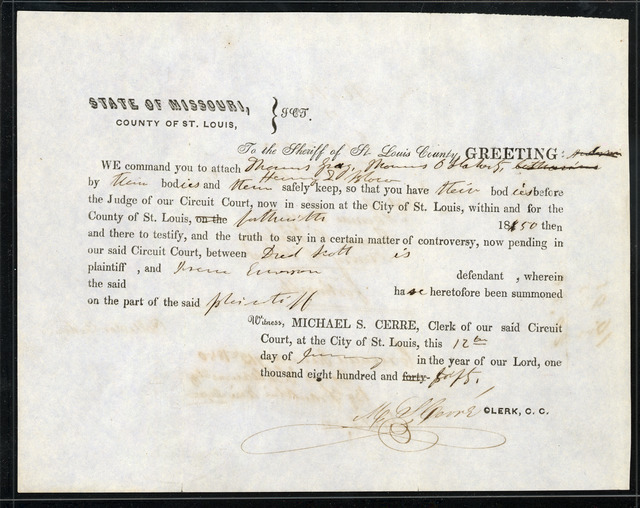 STATE OF MISSOURI,
COUNTY OF ST. LOUIS,
} SCT.
To the Sheriff of St. Louis County, GREETING:
WE command you to attach Thomas Gray, Thomas O Flaherty,
Henry T Blow
by their bodies and them safely keep, so that you have their bodies before
the Judge of our Circuit Court, now in session at the City of St. Louis, within and for the
County of St. Louis, on the forthwith 1850 then
and there to testify, and the truth to say in a certain matter of controversy, now pending in
our said Circuit Court, between Dred Scott is
plaintiff , and Irene Emerson defendant , wherein
the said have heretofore been summoned
on the part of the said plaintiff
Witness, MICHAEL S. CERRE, Clerk of our said Circuit
Court, at the City of St. Louis, this 12th
day of January in the year of our Lord, one
thousand eight hundred and forty- fifty.
M. S. Cerré CLERK, C. C.